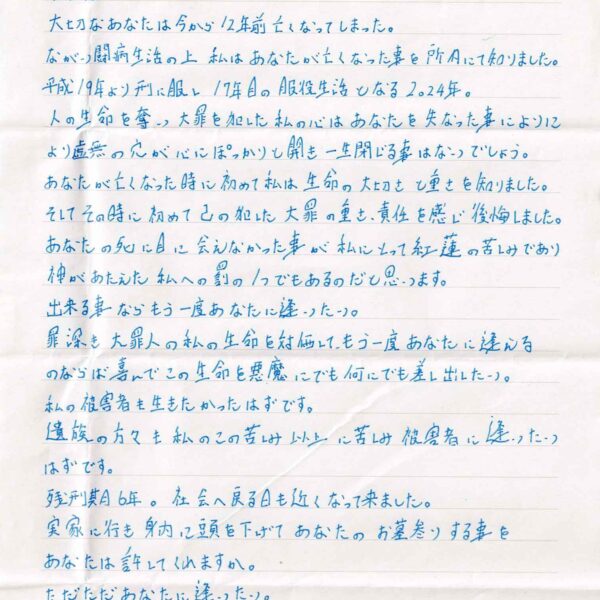 大切なあなたは今から12年前亡くなってしまった。
ながい闘病生活の上 私はあなたが亡くなった事を所内にて知りました。
平成19年より刑に服し 17年目の服役生活となる2024年。
人の生命を奪う大罪を犯した私の心はあなたを失なった事によりに
より虚無の穴が心にぽっかりと開き一生閉じる事はないでしょう。
あなたが亡くなった時に初めて私は生命の大切さと重さを知りました。
そしてその時に初めて己の犯した大罪の重さ、責任を感じ後悔しました。
あなたの死に目に会えなかった事が私にとって紅蓮の苦しみであり
神があたえた私への罰の1つでもあるのだと思います。
出来る事ならもう一度あなたに逢いたい。
罪深き大罪人の私の生命を対価して、もう一度あなたに逢える
のならば喜んでこの生命を悪魔にでも何にでも差し出したい。
私の被害者も生きたかったはずです。
遺族の方々も私のこの苦しみ以上に苦しみ被害者に逢いたい
はずです。
残刑期6年。社会へ戻る日も近くなって来ました。
実家に行き身内に頭を下げてあなたのお墓参りする事を
あなたは許してくれますか。
ただただあなたに逢いたい。